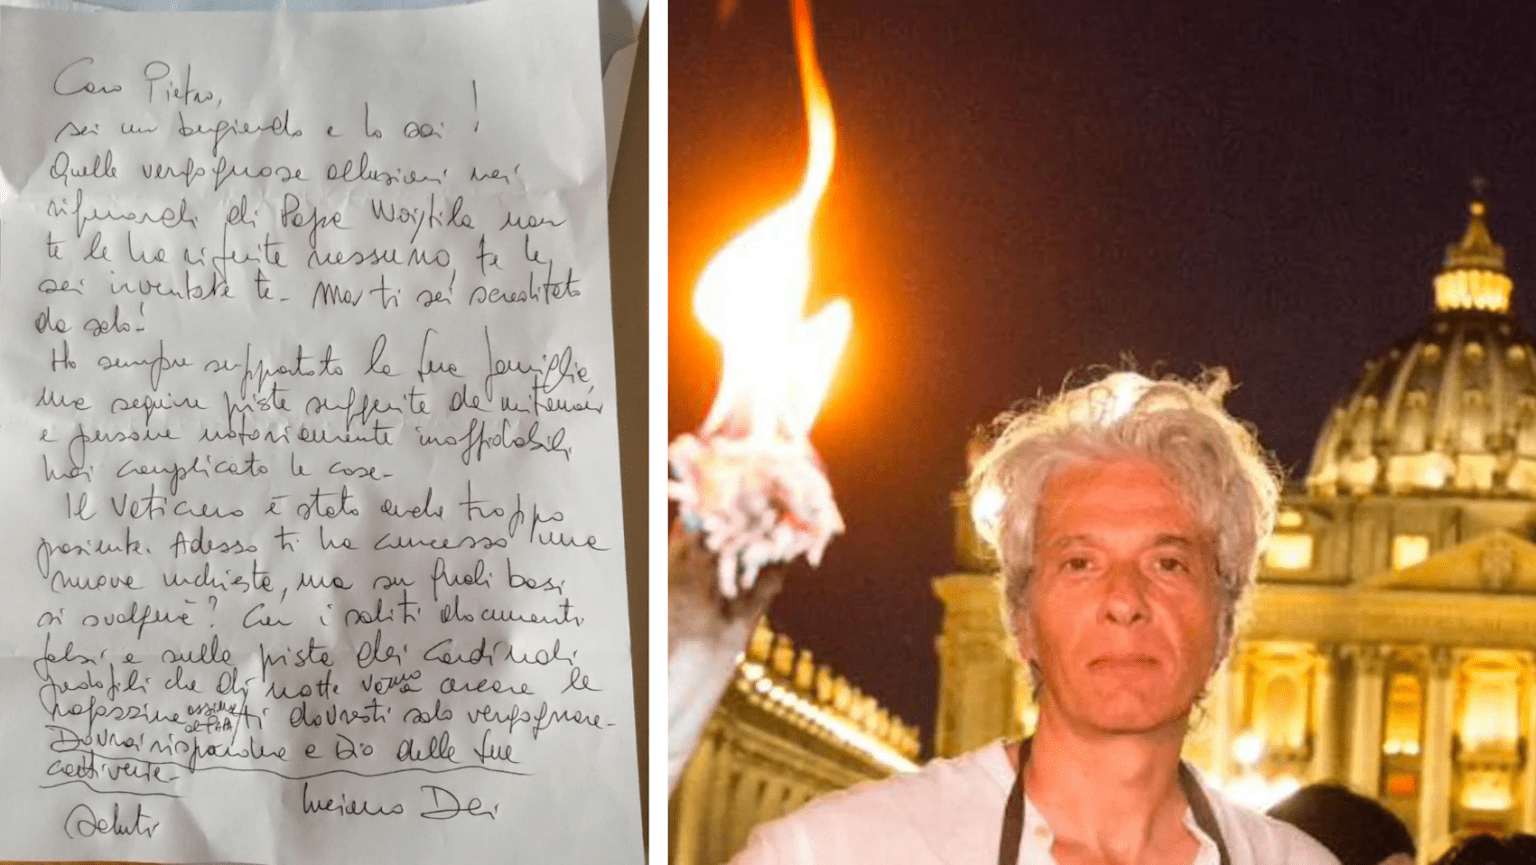 Caro Pietro,
sei un bugiardo e lo sai!
Quelle vergognose allusioni nei
riguardi di Papa Wojtila non
te le ha riferite nessuno, te le
sei inventate te. Ma ti sei screditato
da solo!
Ho sempre supportato la tua famiglia,
ma seguire piste suggerite da mitomani
e persone notoriamente inaffidabili
hai complicato le cose.
Il Vaticano è stato anche troppo
paziente. Adesso ti ha concesso una
nuova inchiesta, ma su quali basi
si svolgerà? Con i soliti documenti
falsi e sulla pista dei Cardinali
pedofili che di notte vanno a cercare le
ragazzine assieme al PAPA/ti dovresti solo vergognare.
Dovrai rispondere a Dio delle tue
cattiverie.
Saluti Luciano Dei